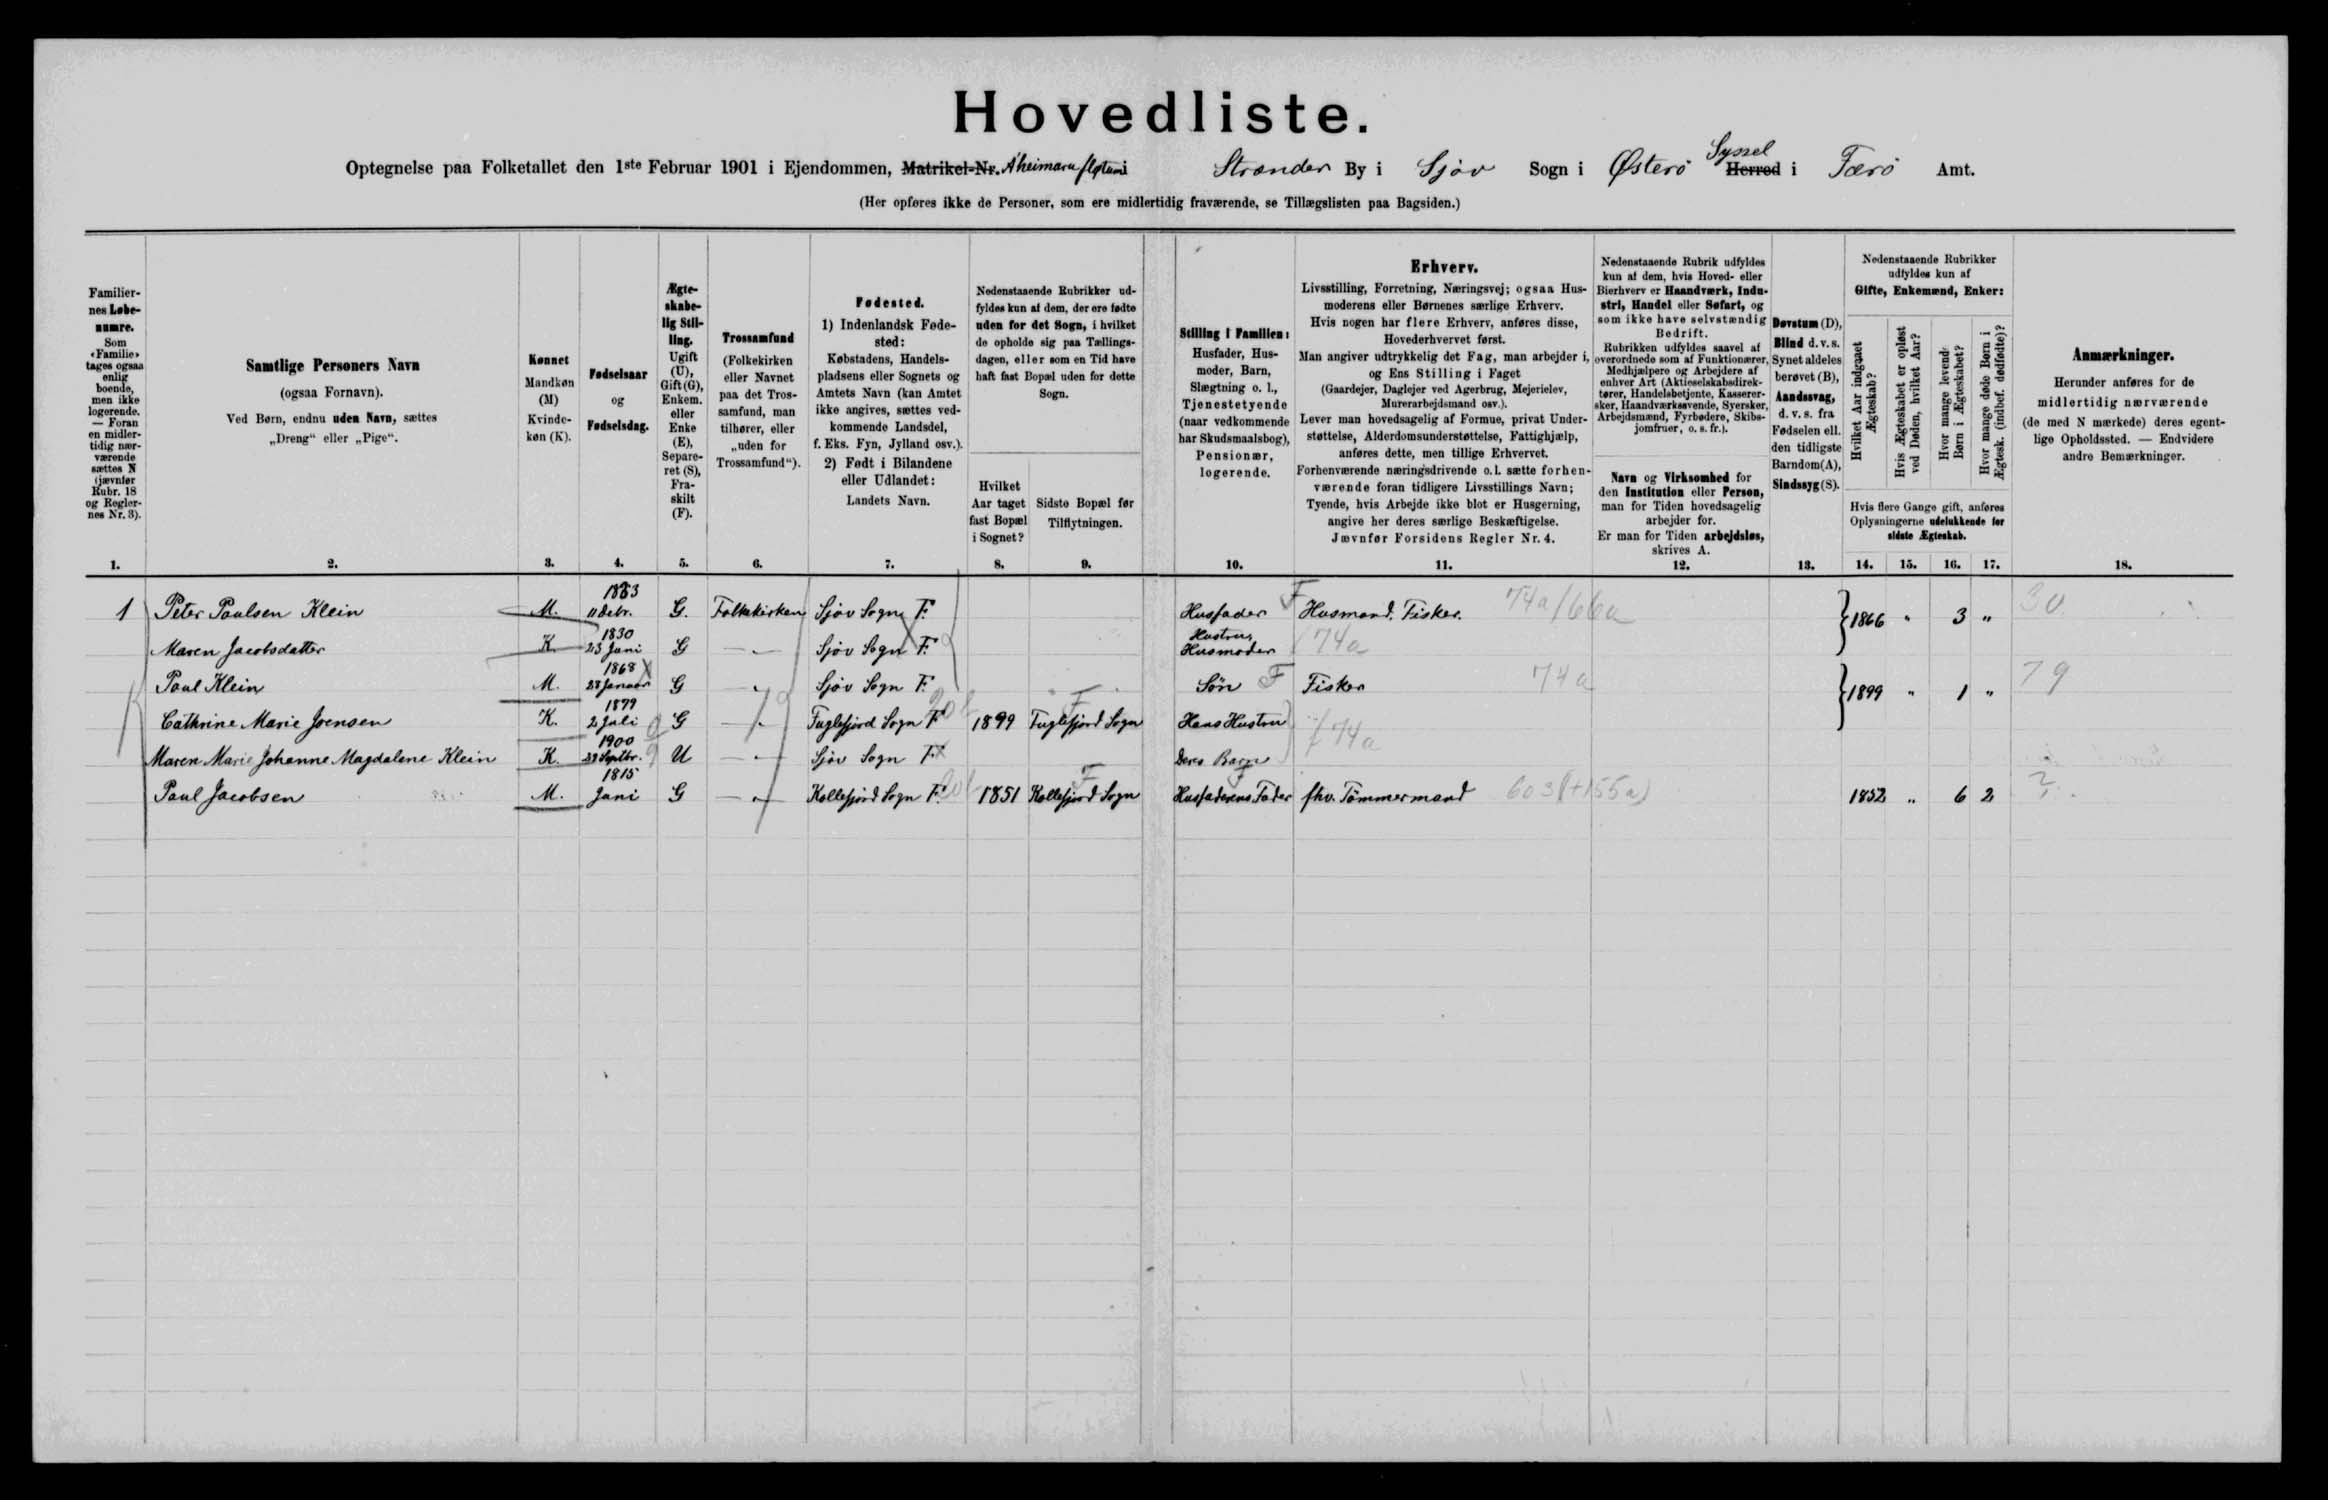 Hovedliste.
Syssel
Optegnelse paa Folketallet den 1ste Februar 1901 i Ejendommen, Matrikel-Nr. i Strænder By i Sjov Sogn i Østerö Herred i Færö Amt.
(Her opføres ikke de Personer, som ere midlertidig fraværende, se Tillægslisten paa Bagsiden.)
Familier-
nes Løbe-
numre.
Som
«Familie»
tages ogsaa
enlig
boende,
men ikke
logerende.
— Foran
en midler-
tidig nær-
værende
sættes N
(jævnfør
Rubr. 18
og Regler-
nes Nr. 3).
1.
Samtlige Personers Navn
(ogsaa Fornavn).
Ved Børn, endnu uden Navn, sættes
„Dreng“ eller „Pige“.
2.
Kønnet
Mandkøn
(M)
Kvinde-
køn (K).
3.
Fødselsaar
og
Fødselsdag.
4.
Ægte-
skabe-
lig Stil-
ling.
Ugift
(U),
Gift (G),
Enkem.
eller
Enke
(E),
Separe-
ret (S),
Fra-
skilt
(F).
5.
Trossamfund
(Folkekirken
eller Navnet
paa det Tros-
samfund, man
tilhører, eller
„uden for
Trossamfund“).
6.
Fødested.
1) Indenlandsk Føde-
sted:
Købstadens, Handels-
pladsens eller Sognets og
Amtets Navn (kan Amtet
ikke angives, sættes ved-
kommende Landsdel,
f. Eks. Fyn, Jylland osv.).
2) Født i Bilandene
eller Udlandet:
Landets Navn.
7.
Nedenstaaende Rubrikker ud-
fyldes kun af dem, der ere fødte
uden for det Sogn, i hvilket
de opholde sig paa Tællings-
dagen, eller som en Tid have
haft fast Bopæl uden for dette
Sogn.
Hvilket
Aar taget
fast Bopæl
i Sognet?
8.
Sidste Bopæl før
Tilflytningen.
9.
Stilling i Familien:
Husfader, Hus-
moder, Barn,
Slægtning o. l.,
Tjenestetyende
(naar vedkommende
har Skudsmaalsbog),
Pensionær,
logerende.
10.
Erhverv.
Livsstilling, Forretning, Næringsvej; ogsaa Hus-
moderens eller Børnenes særlige Erhverv.
Hvis nogen har flere Erhverv, anføres disse,
Hovederhvervet først.
Man angiver udtrykkelig det Fag, man arbejder i,
og Ens Stilling i Faget
(Gaardejer, Daglejer ved Agerbrug, Mejerielev,
Murerarbejdsmand osv.).
Lever man hovedsagelig af Formue, privat Under-
støttelse, Alderdomsunderstøttelse, Fattighjælp,
anføres dette, men tillige Erhvervet.
Forhenværende næringsdrivende o. l. sætte forhen-
værende foran tidligere Livsstillings Navn;
Tyende, hvis Arbejde ikke blot er Husgerning,
angive her deres særlige Beskæftigelse.
Jævnfør Forsidens Regler Nr. 4.
11.
Nedenstaaende Rubrik udfyldes
kun af dem, hvis Hoved- eller
Bierhverv er Haandværk, Indu-
stri, Handel eller Søfart, og
som ikke have selvstændig
Bedrift.
Rubrikken udfyldes saavel af
overordnede som af Funktionærer,
Medhjælpere og Arbejdere af
enhver Art (Aktieselskabsdirek-
tører, Handelsbetjente, Kasserer-
sker, Haandværkssvende, Syersker,
Arbejdsmænd, Fyrbødere, Skibs-
jomfruer, o. s. fr.).
Navn og Virksomhed for
den Institution eller Person,
man for Tiden hovedsagelig
arbejder for.
Er man for Tiden arbejdsløs,
skrives A.
12.
Døvstum (D),
Blind d. v. s.
Synet aldeles
berøvet (B),
Aandssvag,
d. v. s. fra
Fødselen ell.
den tidligste
Barndom (A),
Sindssyg (S).
13.
Nedenstaaende Rubrikker
udfyldes kun af
Gifte, Enkemænd, Enker:
Hvilket Aar indgaaet
Ægteskab?
Hvis Ægteskabet er opløst
ved Døden, hvilket Aar?
Hvor mange levende
Børn i Ægteskabet?
Hvor mange døde Børn i
Ægtesk. (indbef. dødfødte)?
Hvis flere Gange gift, anføres
Oplysningerne udelukkende for
sidste Ægteskab.
14. 15. 16. 17.
Anmærkninger.
Herunder anføres for de
midlertidig nærværende
(de med N mærkede) deres egent-
lige Opholdssted. — Endvidere
andre Bemærkninger.
18.
1 Peter Poulsen Klein M. 11 Debr. G. Folkekirken Sjov Sogn F. Husfader F Husmand. Fisker. 74a/66a 1866 " 3 " 30
Maren Jacobsdatter K. 1830 23 Juni G — " — Sjov Sogn F. Hustru, Husmoder 74a
Poul Klein M. 1868 28 Januar G — " — Sjov Sogn F. Sön F Fisker 74a 1899 " 1 " 79
Cathrine Marie Joensen K. 1879 2 Juli G — " — Fuglefjord Sogn F. 1899 Fuglefjord Sogn Hans Hustru 74a
Maren Marie Johanne Magdalene Klein K. 1900 29 Septbr. U — " — Sjov Sogn F. Deres Barn
Poul Jacobsen M. 1815 Juni G — " — Kollefjord Sogn F. 1851 Kollefjord Sogn Husfaderens Fader fhv. Tömmermand 603(+155a) 1852 " 6 2 ?